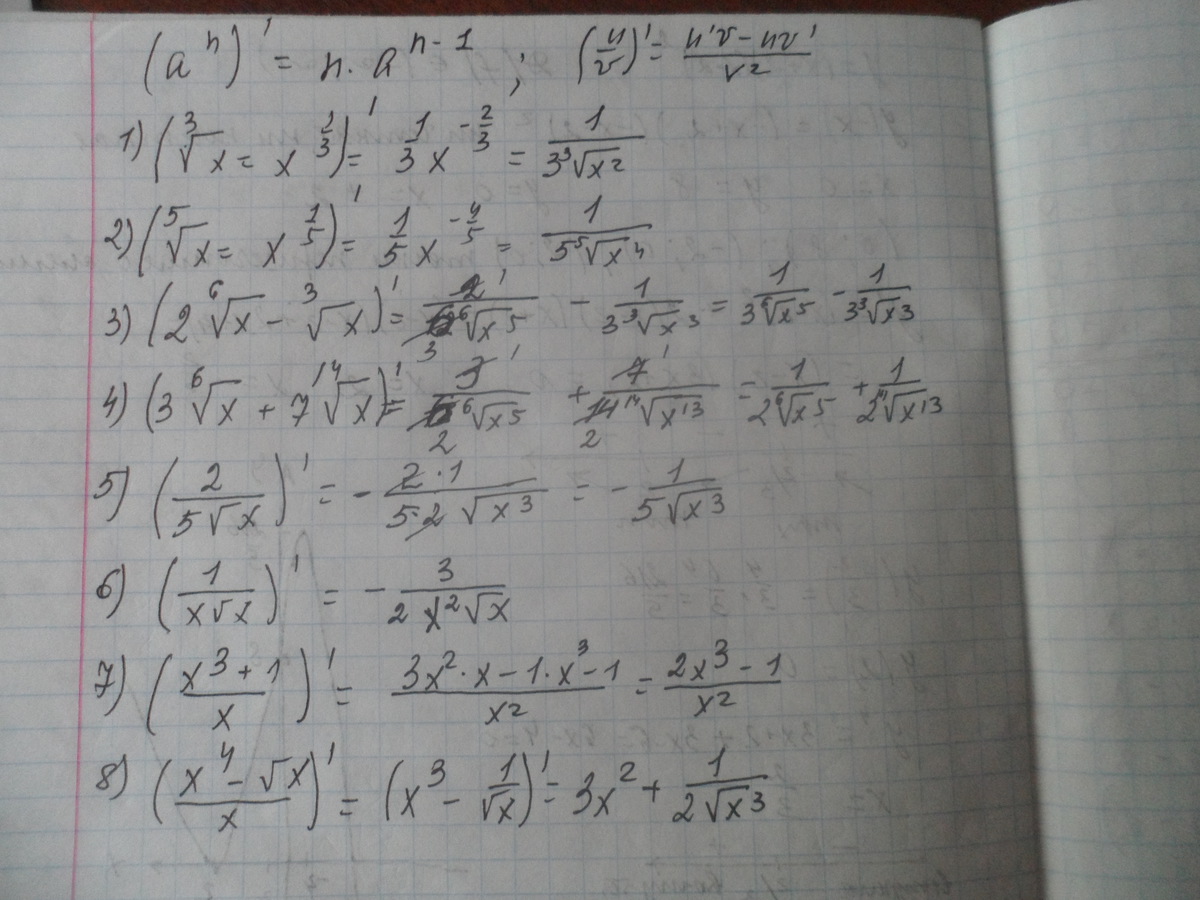 (aⁿ)' = n · aⁿ⁻¹ ; (u/v)' = (u'v − uv')/v²
1) (∛x = x^(1/3))' = 1/3 x^(−2/3) = 1/(3∛x²)
2) (⁵√x = x^(1/5))' = 1/5 x^(−4/5) = 1/(5 ⁵√x⁴)
3) (2 ⁶√x − ³√x)' = 2/(6 ⁶√x⁵) − 1/(3 ³√x³) = 1/(3 ⁶√x⁵) − 1/(3 ³√x³)
4) (3 ⁶√x + 7 ¹⁴√x)' = 3/(6 ⁶√x⁵) + 7/(14 ¹⁴√x¹³) = 1/(2 ⁶√x⁵) + 1/(2 ¹⁴√x¹³)
5) (2/(5√x))' = − (2·1)/(5·2 √x³) = − 1/(5√x³)
6) (1/(x√x))' = − 3/(2x²√x)
7) ((x³+1)/x)' = (3x²·x − 1·x³ − 1)/x² = (2x³ − 1)/x²
8) ((x⁴ − √x)/x)' = (x³ − 1/√x)' = 3x² + 1/(2√x³)